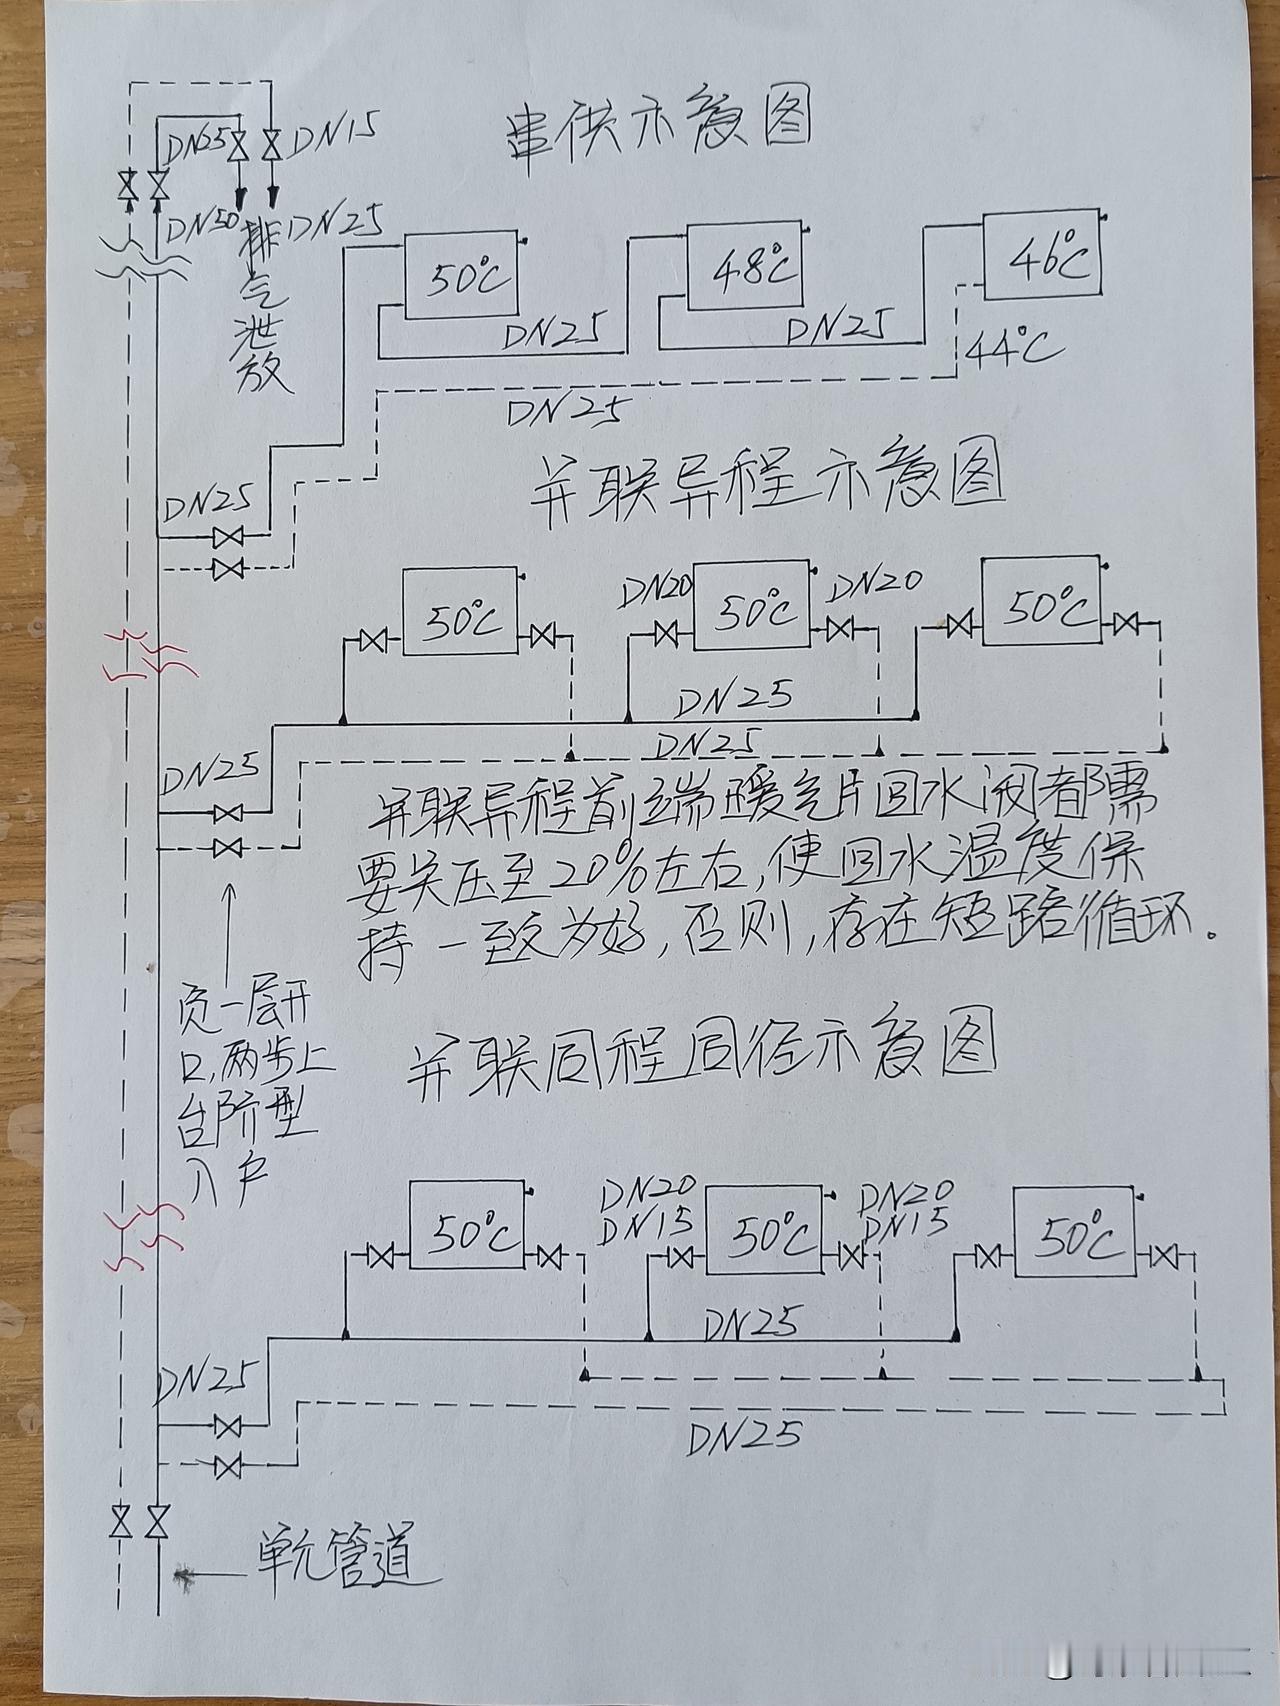 串供示意图
DN25
DN15
DN50
DN25
排
气
泄
放
50℃
48℃
46℃
DN25
DN25
44℃
DN25
DN25
并联异程示意图
50℃
DN20
50℃
DN20
50℃
DN25
DN25
DN25
并联异程前端暖气片回水阀都需
要关压至20%左右,使回水温度保
持一致为好,否则,存在短路循环。
负一层开
口,两步上
台阶型
入户
并联同程同径示意图
50℃
DN20
DN15
50℃
DN20
DN15
50℃
DN25
DN25
DN25
单元管道